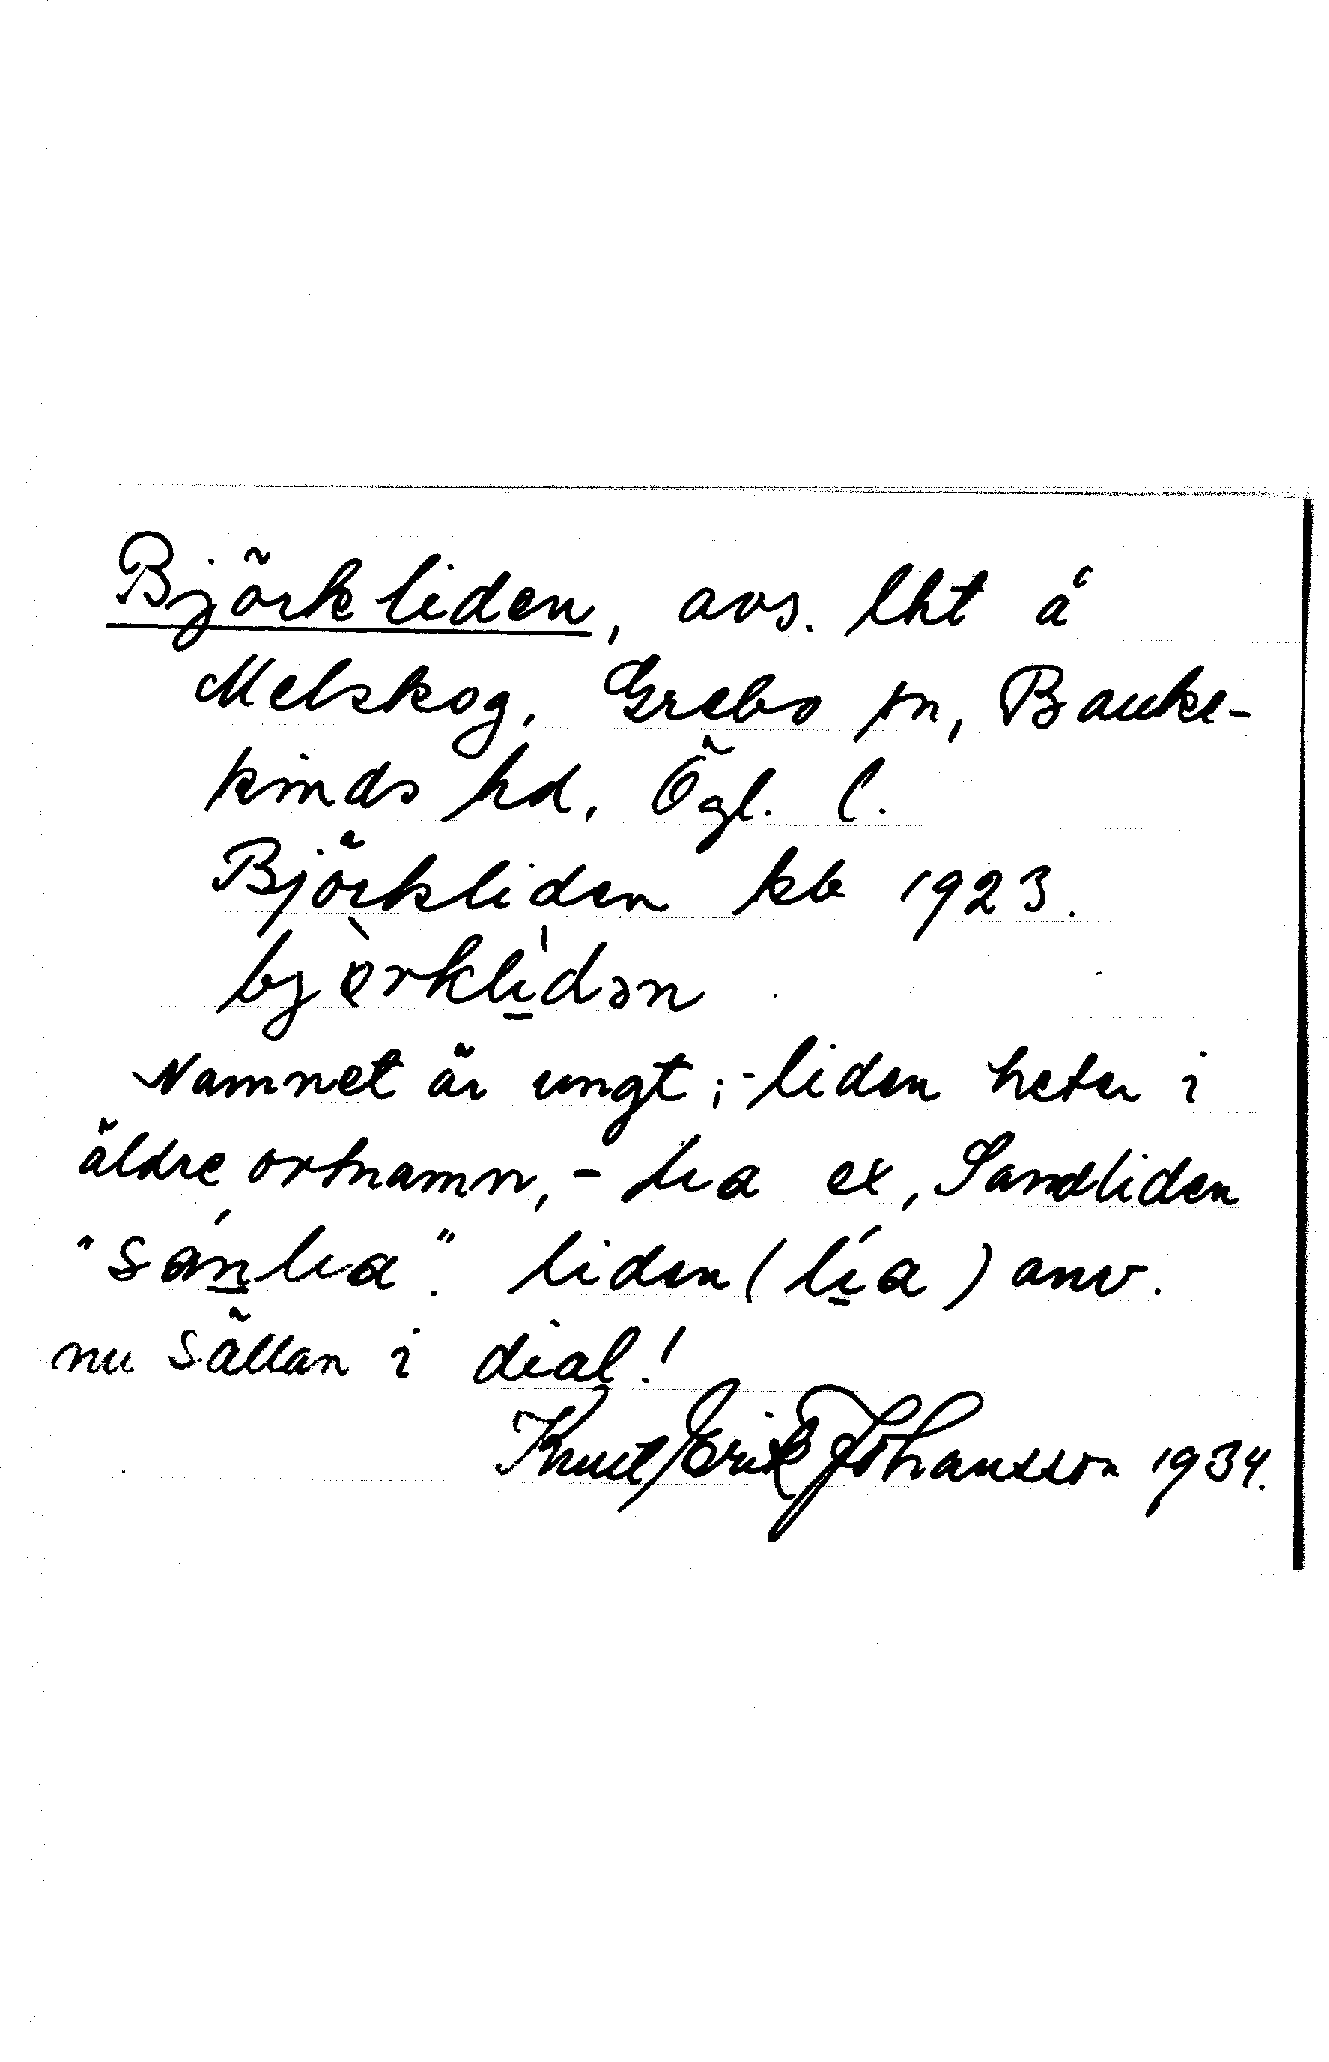 Björkliden, avs. lht å
Melskog, Grebo sn, Banke-
kinds hd, Ögl. l.
Björkliden kb 1923.
bjə̀rkli̱̍dən
Namnet är ungt; -liden heter i
äldre ortnamn, -lıa ex, Sandliden
"sán̲lıa". liden (lí̲a) anv.
nu sällan i dial!
Knut Erik Johansson 1934.